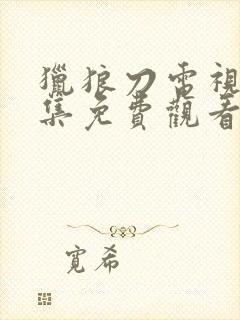 獵狼刀電視
集免費觀看
寬希